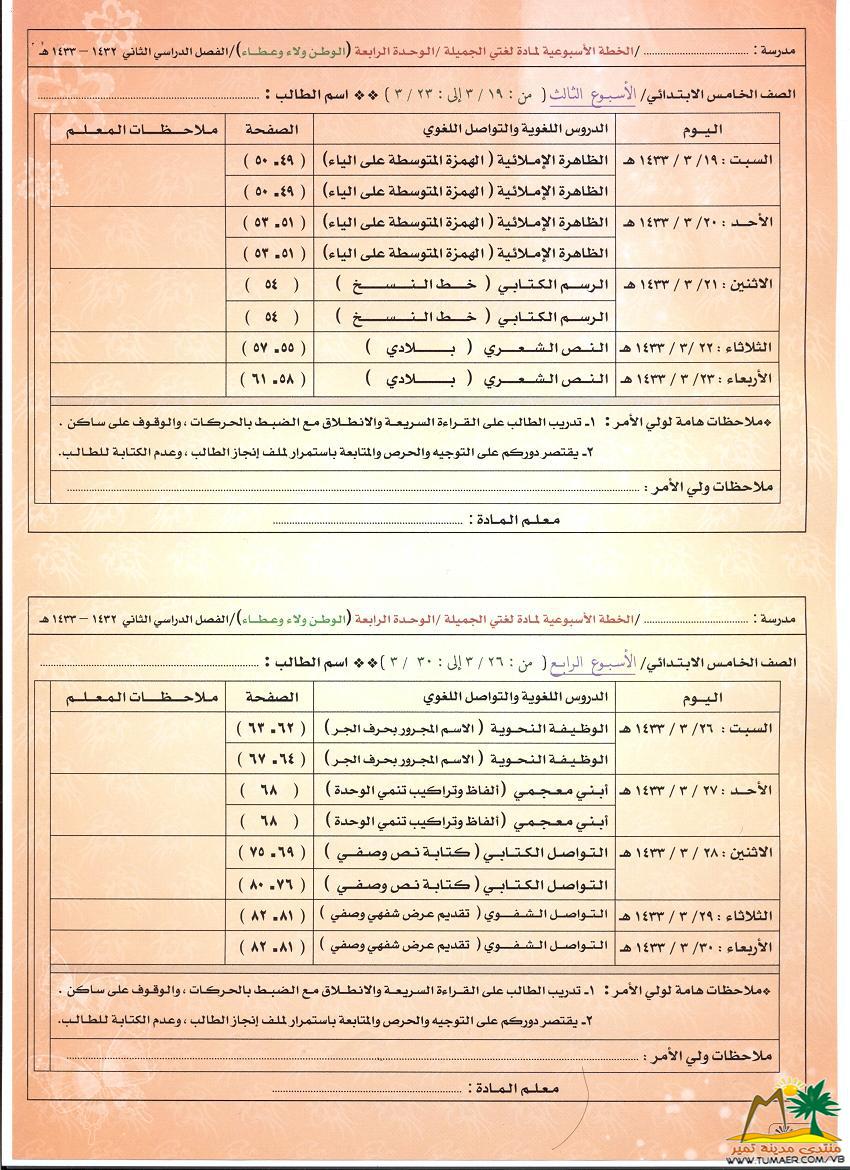 مدرسة : ............................ /الخطة الأسبوعية لمادة لغتي الجميلة /الوحدة الرابعة (الوطن ولاء وعطاء)/الفصل الدراسي الثاني ١٤٣٢ – ١٤٣٣ هـ
الصف الخامس الابتدائي/ الأسبوع الثالث ( من : ١٩ / ٣ إلى : ٢٣ / ٣ ) ❖❖ اسم الطالب : ............................
اليوم الدروس اللغوية والتواصل اللغوي الصفحة ملاحظات المعلم
السبت : ١٩/ ٣ / ١٤٣٣ هـ الظاهرة الإملائية ( الهمزة المتوسطة على الياء) ( ٤٩ـ ٥٠ )
الظاهرة الإملائية ( الهمزة المتوسطة على الياء) ( ٤٩ـ ٥٠ )
الأحد : ٢٠/ ٣ / ١٤٣٣ هـ الظاهرة الإملائية ( الهمزة المتوسطة على الياء) ( ٥١ـ ٥٣ )
الظاهرة الإملائية ( الهمزة المتوسطة على الياء) ( ٥١ـ ٥٣ )
الاثنين : ٢١/ ٣ / ١٤٣٣ هـ الرسم الكتابي ( خط النسخ ) ( ٥٤ )
الرسم الكتابي ( خط النسخ ) ( ٥٤ )
الثلاثاء : ٢٢ /٣ / ١٤٣٣ هـ النص الشعري ( بلادي ) ( ٥٥ـ ٥٧ )
الأربعاء : ٢٣/ ٣ / ١٤٣٣ هـ النص الشعري ( بلادي ) ( ٥٨ـ ٦١ )
❖ملاحظات هامة لولي الأمر : ١ـ تدريب الطالب على القراءة السريعة والانطلاق مع الضبط بالحركات ، والوقوف على ساكن .
٢ـ يقتصر دوركم على التوجيه والحرص والمتابعة باستمرار لملف إنجاز الطالب ، وعدم الكتابة للطالب.
ملاحظات ولي الأمر : ............................
معلم المادة : ............................
مدرسة : ............................ /الخطة الأسبوعية لمادة لغتي الجميلة /الوحدة الرابعة (الوطن ولاء وعطاء)/الفصل الدراسي الثاني ١٤٣٢ – ١٤٣٣ هـ
الصف الخامس الابتدائي/ الأسبوع الرابع ( من : ٢٦ / ٣ إلى : ٣٠ / ٣ ) ❖❖ اسم الطالب : ............................
اليوم الدروس اللغوية والتواصل اللغوي الصفحة ملاحظات المعلم
السبت : ٢٦/ ٣ / ١٤٣٣ هـ الوظيفة النحوية ( الاسم المجرور بحرف الجر ) ( ٦٢ـ ٦٣ )
الوظيفة النحوية ( الاسم المجرور بحرف الجر ) ( ٦٤ـ ٦٧ )
الأحد : ٢٧/ ٣ / ١٤٣٣ هـ أبني معجمي (ألفاظ وتراكيب تنمي الوحدة ) ( ٦٨ )
أبني معجمي (ألفاظ وتراكيب تنمي الوحدة ) ( ٦٨ )
الاثنين : ٢٨ / ٣ / ١٤٣٣ هـ التواصل الكتابي ( كتابة نص وصفي ) ( ٦٩ـ ٧٥ )
التواصل الكتابي ( كتابة نص وصفي ) ( ٧٦ـ ٨٠ )
الثلاثاء : ٢٩/ ٣ / ١٤٣٣ هـ التواصل الشفوي ( تقديم عرض شفهي وصفي ) ( ٨١ـ ٨٢ )
الأربعاء : ٣٠/ ٣ / ١٤٣٣ هـ التواصل الشفوي ( تقديم عرض شفهي وصفي ) ( ٨١ـ ٨٢ )
❖ملاحظات هامة لولي الأمر : ١ـ تدريب الطالب على القراءة السريعة والانطلاق مع الضبط بالحركات ، والوقوف على ساكن .
٢ـ يقتصر دوركم على التوجيه والحرص والمتابعة باستمرار لملف إنجاز الطالب ، وعدم الكتابة للطالب.
ملاحظات ولي الأمر : ............................
معلم المادة : ............................
منتدى مدينة تمير
WWW.TUMAER.COM/VB